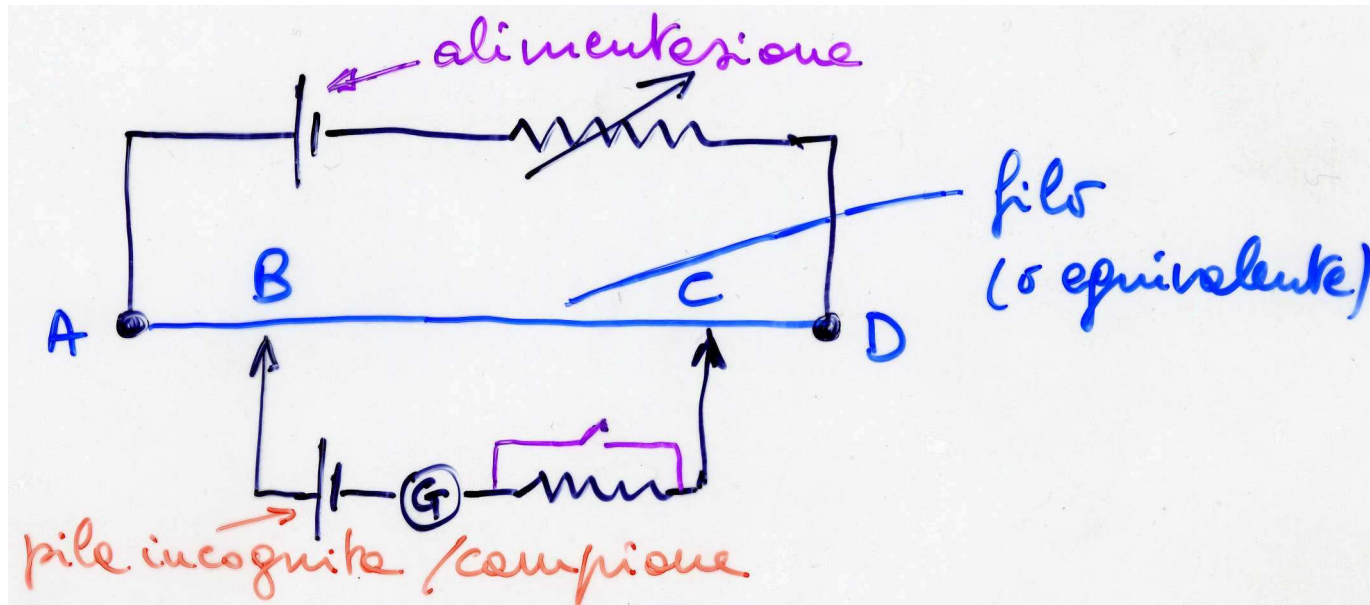 alimentazione
filo
(o equivalente)
B
C
A
D
G
pila incognita / campione